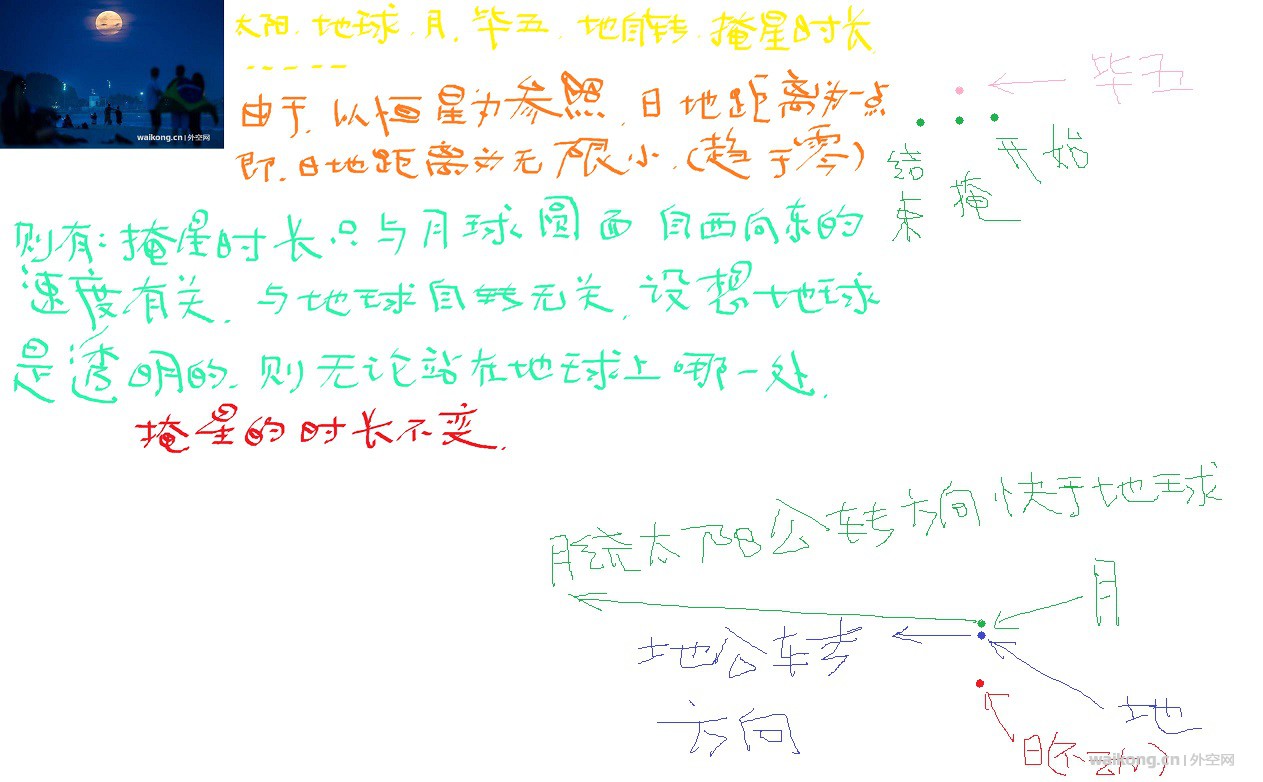 太阳.地球.月.毕五.地自转.掩星时长
waikong.cn | 外空网
由于.以恒星为参照.日地距离为一点
即.日地距离为无限小.(趋于零)
毕五
开始
掩
结束
则有:掩星时长只与月球圆面自西向东的
速度有关.与地球自转无关.设想地球
是透明的.则无论站在地球上哪一处.
掩星的时长不变.
月绕太阳公转方向快于地球
月
地公转
方向
地
waikong.cn | 外空网